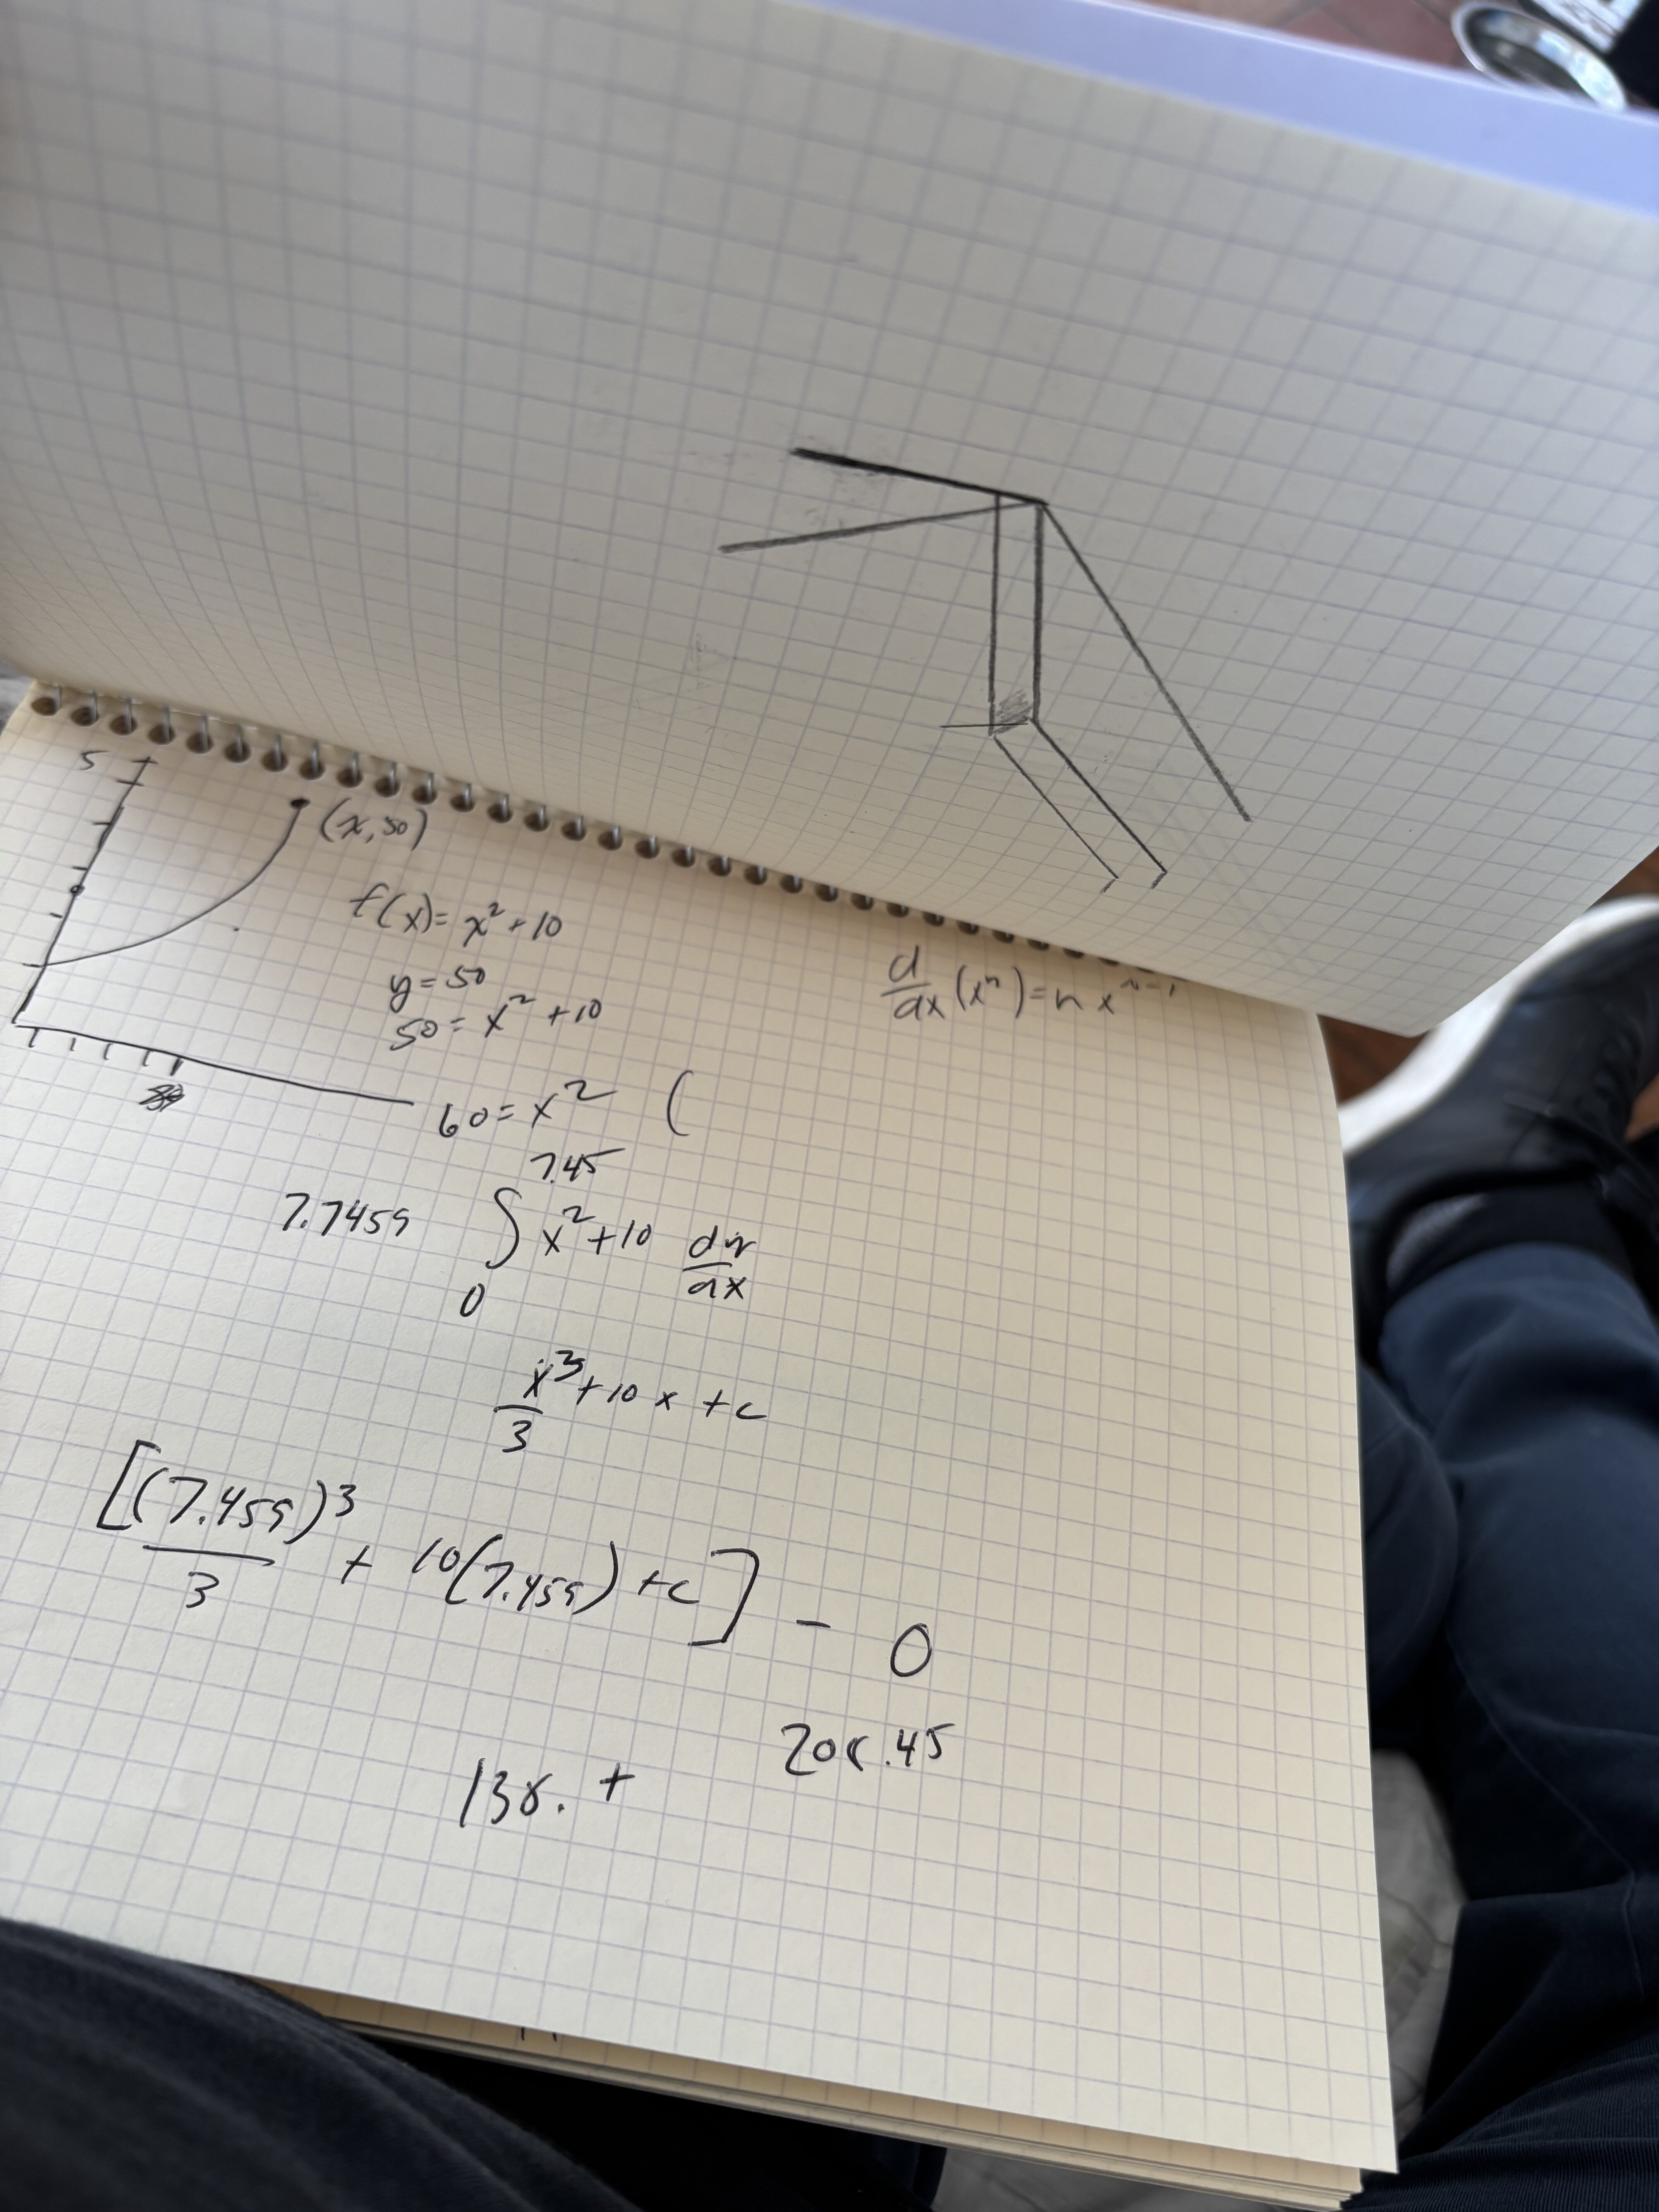 5
(x, 50)
f(x) = x² + 10
y = 50
50 = x² + 10
d/dx (xⁿ) = n xⁿ⁻¹
60 = x² (
7.45
7.7459 ∫ x² + 10 dy/dx
0
x³/3 + 10x + c
[(7.459)³/3 + 10(7.459) + c] - 0
208.45
138. +